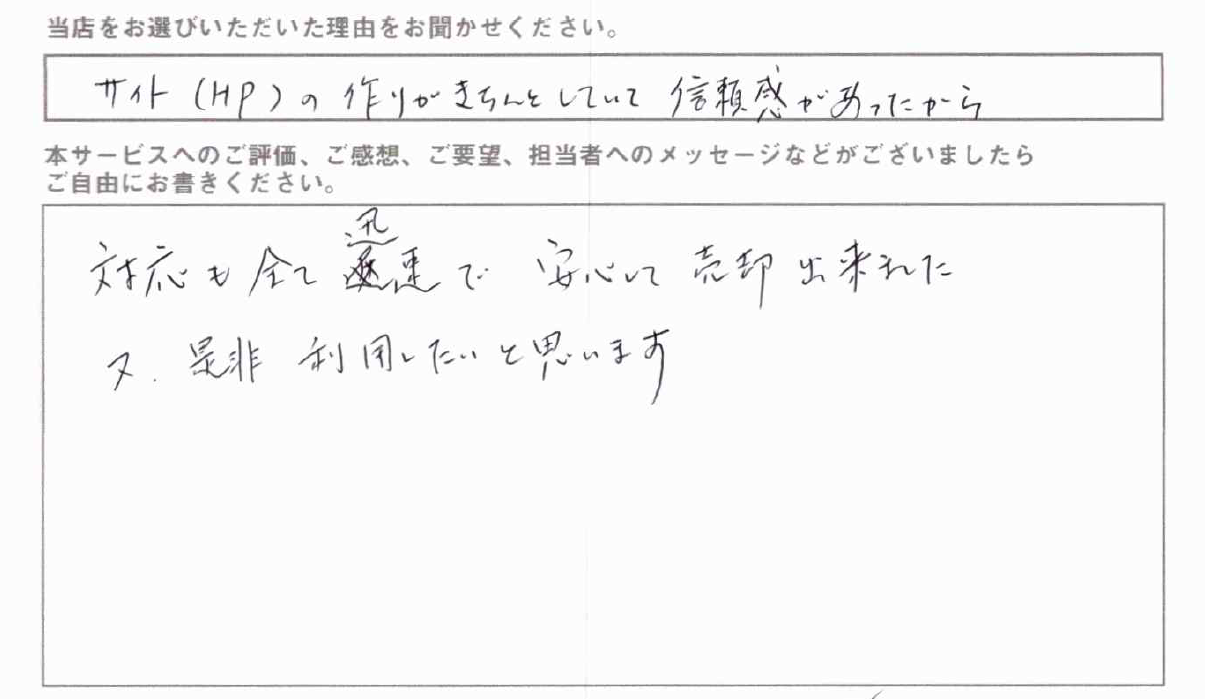 当店をお選びいただいた理由をお聞かせください。
サイト(HP)の作りがきちんとしていて信頼感があったから
本サービスへのご評価、ご感想、ご要望、担当者へのメッセージなどがございましたら
ご自由にお書きください。
対応も全て迅速で 安心して 売却出来れた
又. 是非 利用したいと思います